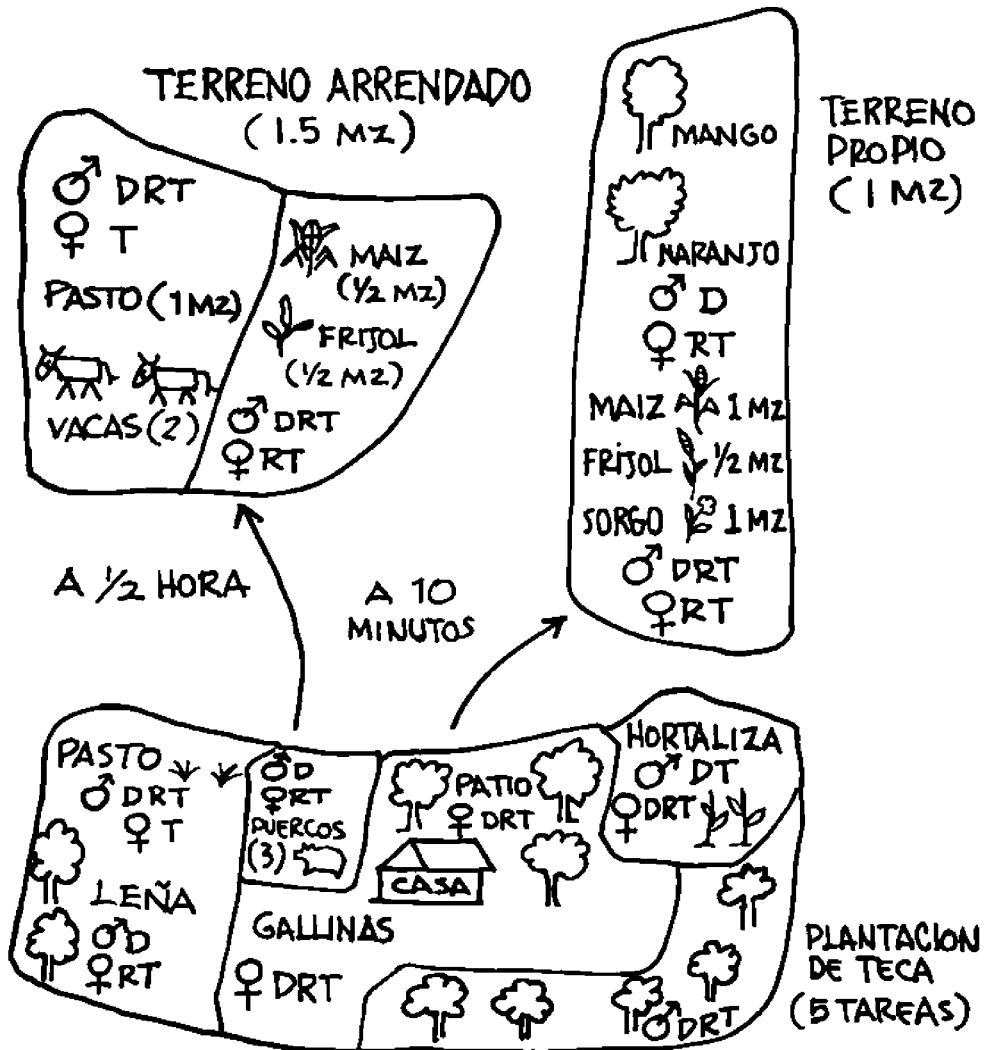 TERRENO ARRENDADO
(1.5 MZ)
♂ DRT
♀ T
PASTO (1 MZ)
VACAS (2)
MAIZ
(1/2 MZ)
FRIJOL
(1/2 MZ)
♂ DRT
♀ RT
TERRENO
PROPIO
(1 MZ)
MANGO
NARANJO
♂ D
♀ RT
MAIZ 1 MZ
FRIJOL 1/2 MZ
SORGO 1 MZ
♂ DRT
♀ RT
A 1/2 HORA
A 10
MINUTOS
PASTO
♂ DRT
♀ T
LEÑA
♂ D
♀ RT
♂ D
♀ RT
PUERCOS
(3)
GALLINAS
♀ DRT
PATIO
♀ DRT
CASA
HORTALIZA
♂ DT
♀ DRT
♂ DRT
PLANTACION
DE TECA
(5 TAREAS)